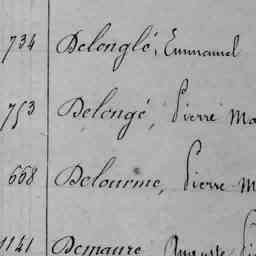 734 Delonglé, Emmanuel
753 Delongé, Pierre Ma
668 Delourme, Pierre M
1141 Demaure Auguste